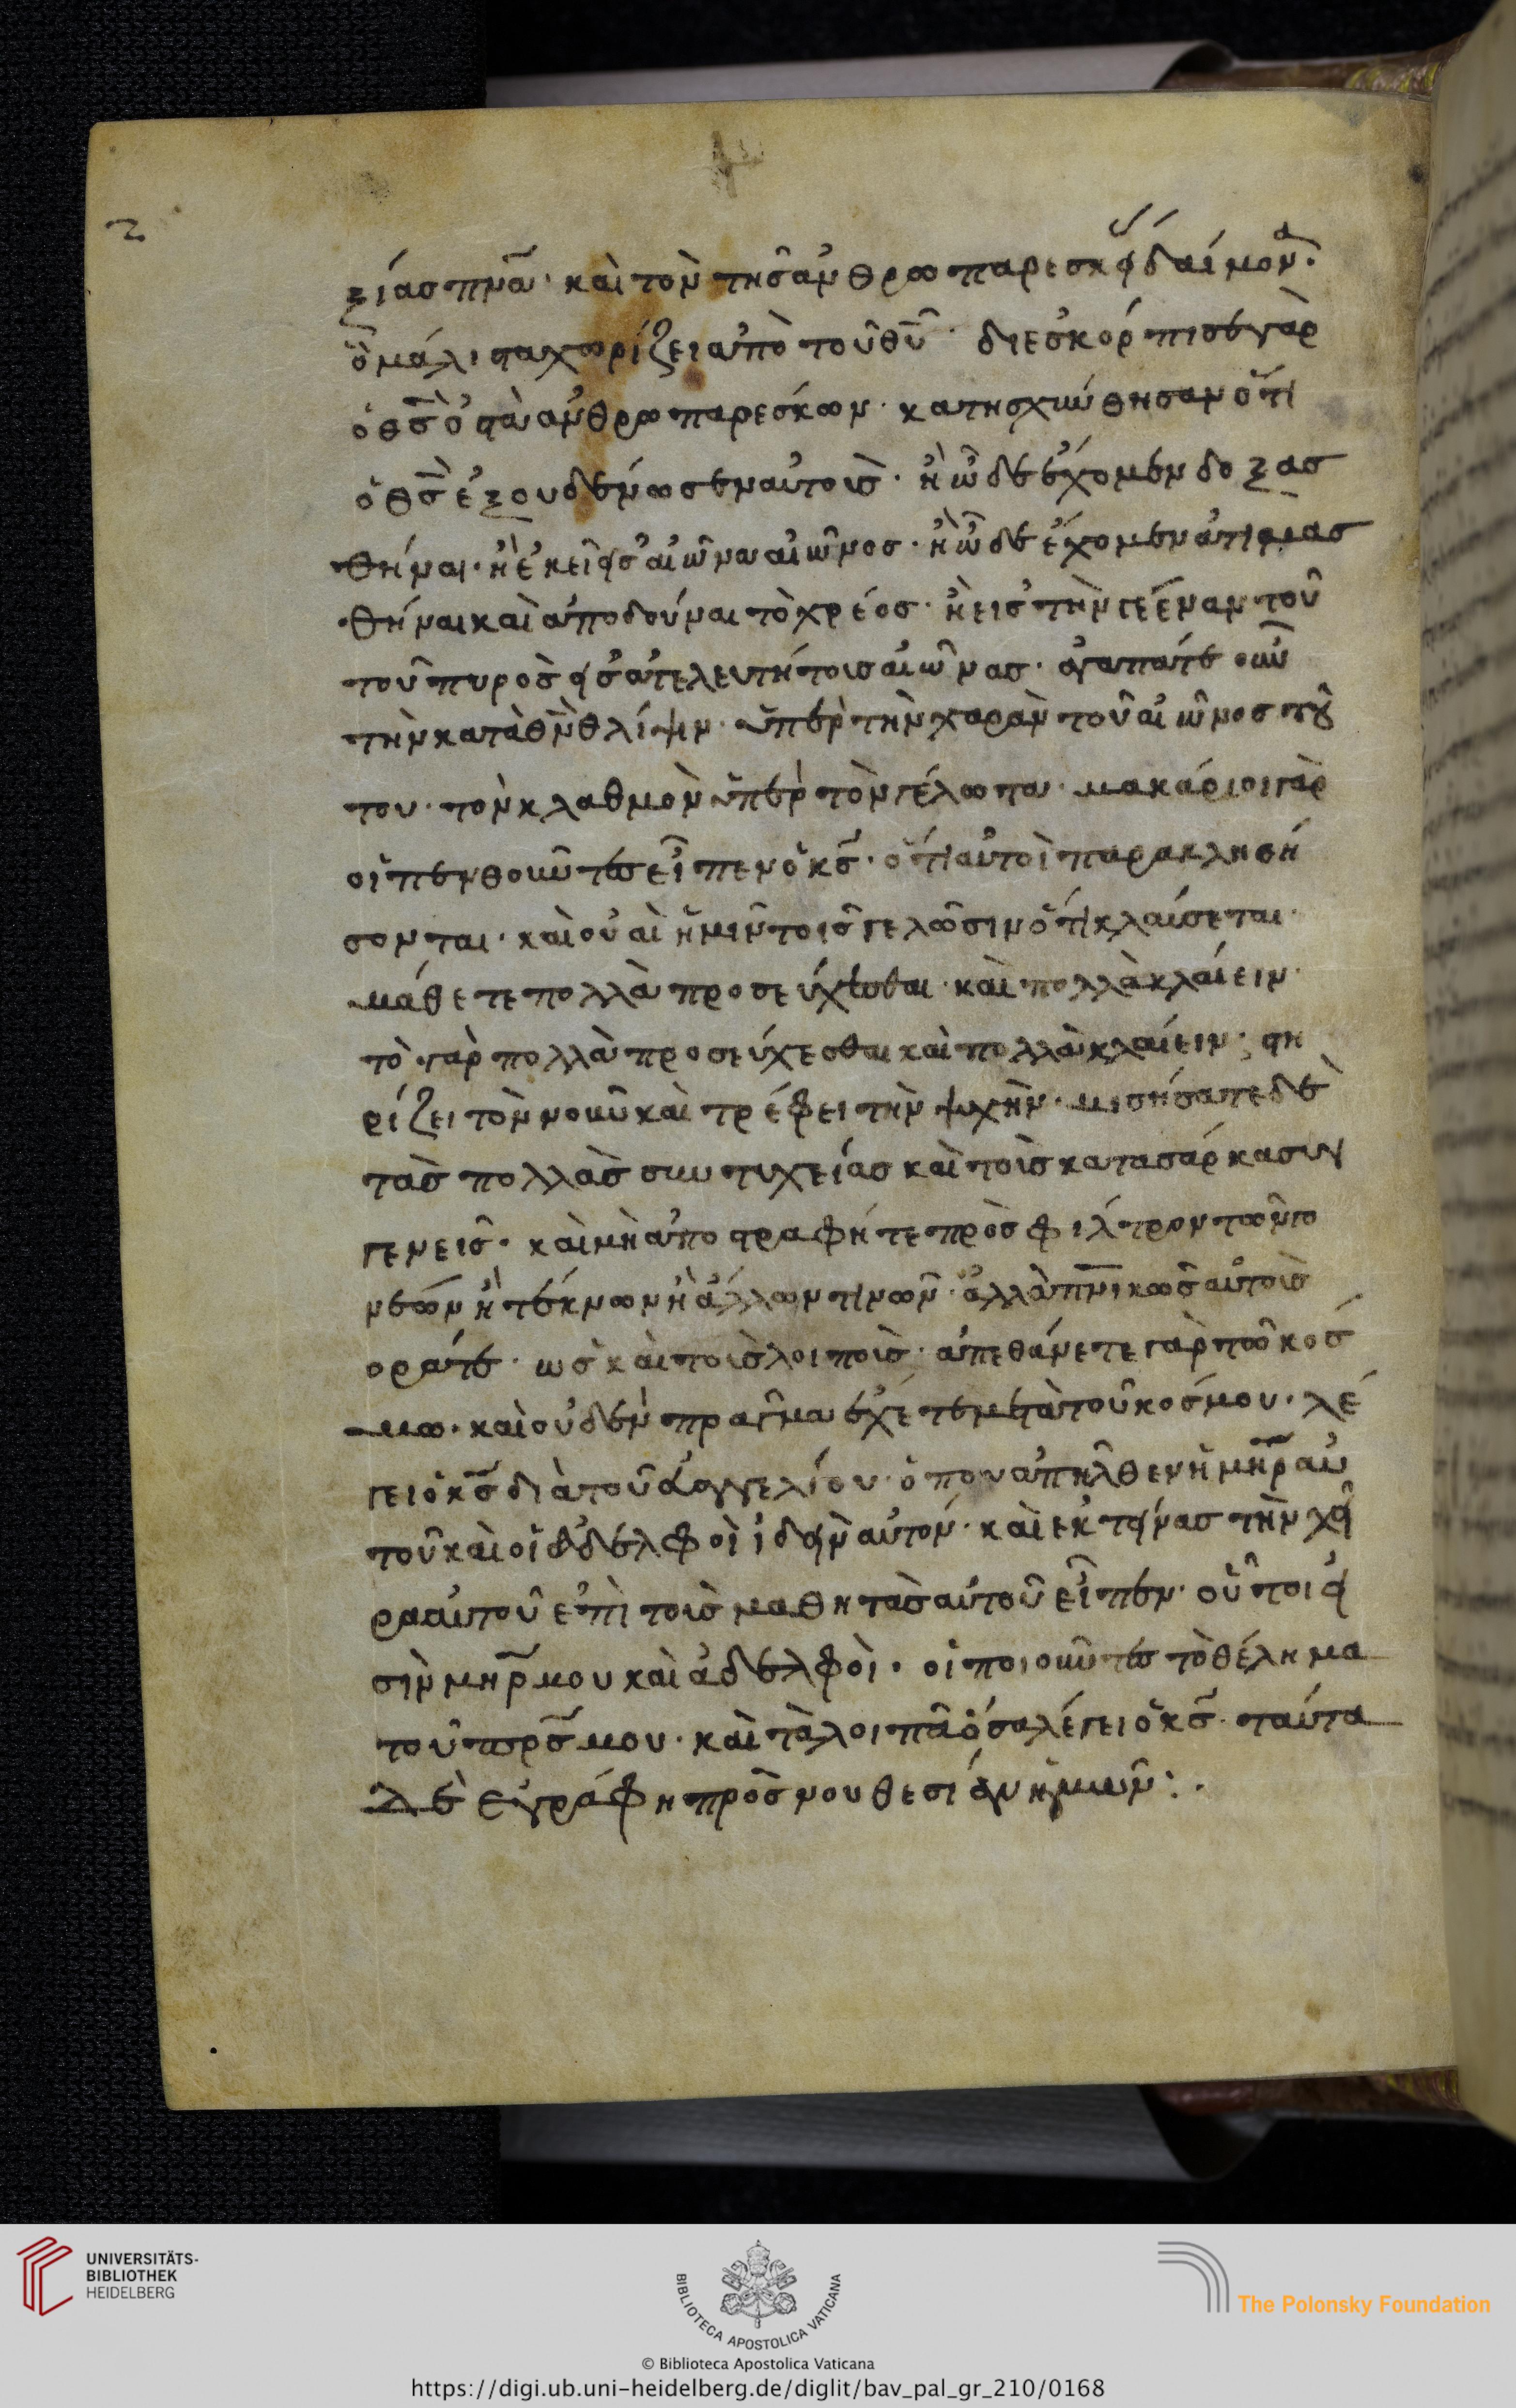 ξίας πνα̅· καὶ τὸν τῆς ἀνθρωπαρεσκεί δαίμον̅α·
ὃ μάλιστα χωρίζει ἀπὸ τοῦ θυ̅· διεσκόρπισε γὰρ
ὁ θς̅ ὀστὰ ἀνθρωπαρέσκων· κατησχύνθησαν ὅτι
ὁ θς̅ ἐξουδένωσεν αὐτοὺς· ἢ ὧδε ἔχομεν δοξασ
θῆναι· ἢ ἐκεῖ εἰς αἰῶνα αἰῶνος· ἢ ὧδε ἔχομεν ἀτιμασ
θῆναι καὶ ἀποδοῦναι τὸ χρέος· ἢ εἰς τὴν γέεναν τοῦ
τοῦ πυρὸς εἰς ἀτελευτήτους αἰῶνας· ἀγαπᾶτε οὖν
τὴν κατὰ θν̅ θλίψιν· ὑπὲρ τὴν χαρὰν τοῦ αἰῶνος τού
του· τὸν κλαθμὸν ὑπὲρ τὸν γέλωτα· μακάριοι γὰρ
οἱ πενθοῦντες εἶπεν ὁ κς̅· ὅτι αὐτοὶ παρακληθή
σονται· καὶ οὐαὶ ἡμῖν τοῖς γελῶσιν ὅτι κλαύσεται·
μάθετε πολλὰ προσεύχεσθαι· καὶ πολλὰ κλαίειν·
τὸ γὰρ πολλὰ προσεύχεσθαι καὶ πολλὰ κλαίειν· στη
ρίζει τὸν νοῦν καὶ τρέφει τὴν ψυχὴν· μισήσατε δὲ
τὰς πολλὰς συντυχείας καὶ τοὺς κατασάρκα συγ
γενεῖς· καὶ μὴ ἀποστραφῆτε πρὸς φίλτρον τῶν γο
νέων ἢ τέκνων ἢ ἄλλων τινῶν· ἀλλὰ πν̅ικῶς αὐτοὺς
ορᾶτε· ὡς καὶ τοὺς λοιποὺς· ἀπεθάνετε γὰρ τῶ κόσ
μω· καὶ οὐδὲν πρᾶγμα ἔχετε μετὰ τοῦ κόσμου· λέ
γει ὁ κς̅ διὰ τοῦ εὐαγγελίου· ὅπου ἀπῆλθεν ἡ μηρ̅ αὐ
τοῦ καὶ οἱ ἀδελφοὶ ἰδεῖν αὐτόν· καὶ ἐκτείνας τὴν χεῖ
ρα αὐτοῦ ἐπὶ τοὺς μαθητὰς αὐτοῦ εἶπεν· οὗτοι εἰ
σὶν μηρ̅ μου καὶ ἀδελφοὶ· οἱ ποιοῦντες τὸ θέλημα
τοῦ πρς̅ μου· καὶ τὰ λοιπὰ ὅσα λέγει ὁ κς̅· ταῦτα
δὲ ἐγράφη πρὸς νουθεσίαν ἡμῶν:·
UNIVERSITÄTS-
BIBLIOTHEK
HEIDELBERG
BIBLIOTECA APOSTOLICA VATICANA
The Polonsky Foundation
© Biblioteca Apostolica Vaticana
https://digi.ub.uni-heidelberg.de/diglit/bav_pal_gr_210/0168